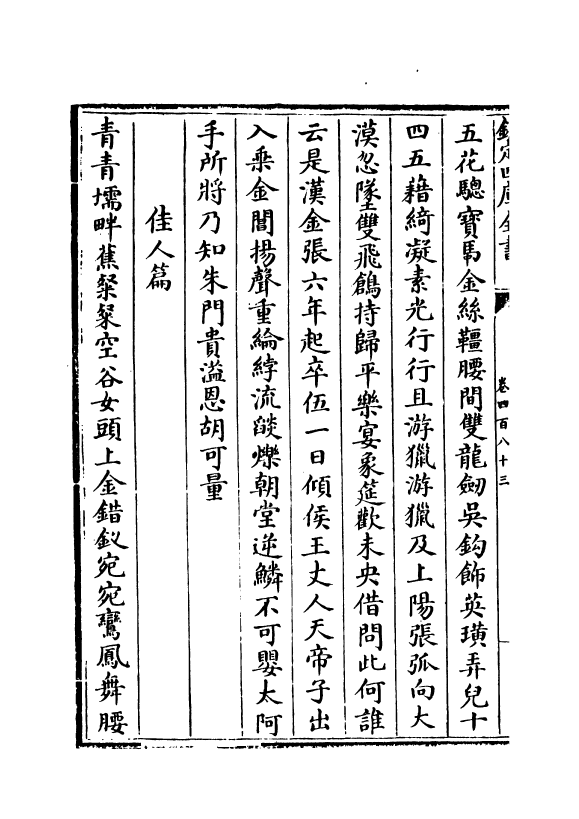 欽定四庫全書
卷四百八十三
五花驄寶馬金絲韁腰間雙龍劒吳鈎飾英璜弄兒十
四五藉綺凝素光行行且游獵游獵及上陽張弧向大
漠忽墜雙飛鶬持歸平樂宴象筵歡未央借問此何誰
云是漢金張六年起卒伍一日傾侯王丈人天帝子出
入乘金閶揚聲重綸綍流燄爍朝堂逆鱗不可嬰太阿
手所將乃知朱門貴溢恩胡可量
佳人篇
青青壖畔蕉粲粲空谷女頭上金錯釵宛宛鸞鳳舞腰